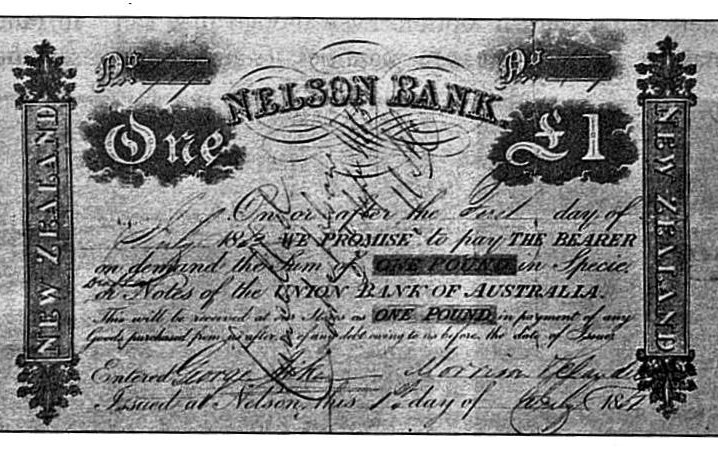 No No
NELSON BANK
One £1
NEW ZEALAND
NEW ZEALAND
On or after the First day of
July 18 WE PROMISE to pay THE BEARER
on demand the Sum of ONE POUND in Specie
or Notes of the UNION BANK OF AUSTRALIA.
This will be received at our Stores as ONE POUND in payment of any
Goods purchased from us after or of any debt owing to us before, the date of Issue
Entered George
Issued at Nelson, this 1st day of July 18